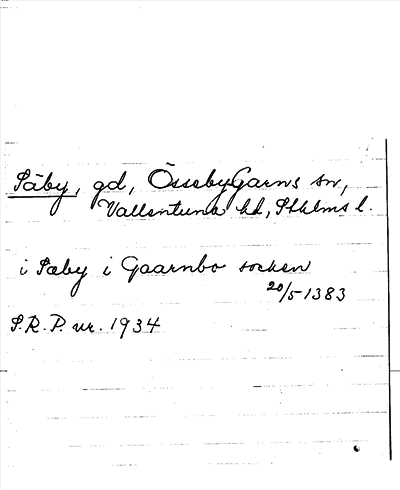 Säby, gd, ÖssebyGarns sn,
Vallentuna hd, Sthlms l.
i Sæby i Gaarnbo socken
20/5-1383
S.R.P. nr. 1934